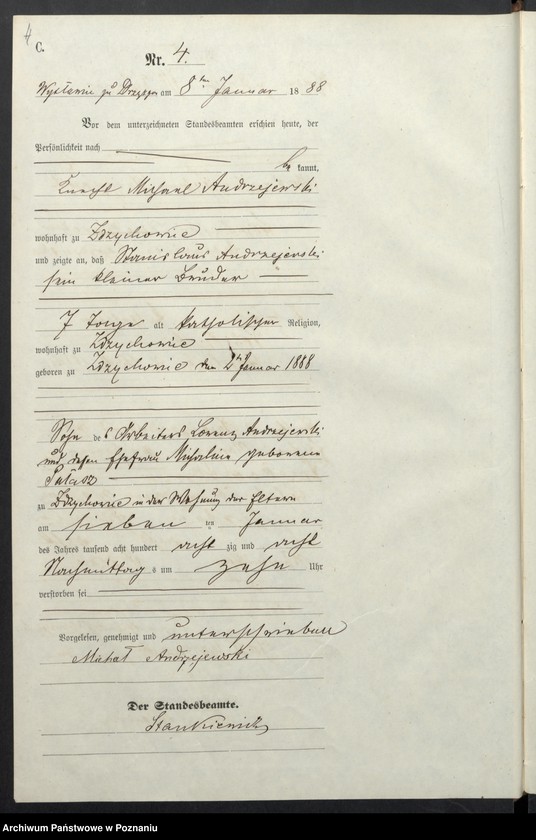 4
C.
Nr. 4.
zu am 8ten Januar 1888
Vor dem unterzeichneten Standesbeamten erschien heute, der
Persönlichkeit nach
be kannt,
Knecht Michael Andrzejewski
wohnhaft zu Zdzychowice
und zeigte an, daß Stanislaus Andrzejewski
sein kleiner Bruder
7 Tage alt katholischer Religion,
wohnhaft zu Zdzychowice
geboren zu Zdzychowice den 2ten Januar 1888
Sohn des Arbeiters Lorenz Andrzejewski
und dessen Ehefrau Michalina geborenen
zu Zdzychowice in der Wohnung der Eltern
am sieben ten Januar
des Jahres tausend acht hundert acht zig und acht
Nachmittag s um zehn Uhr
verstorben sei
Vorgelesen, genehmigt und unterschrieben
Michał Andrzejewski
Der Standesbeamte.
Stankiewicz
Archiwum Państwowe w Poznaniu